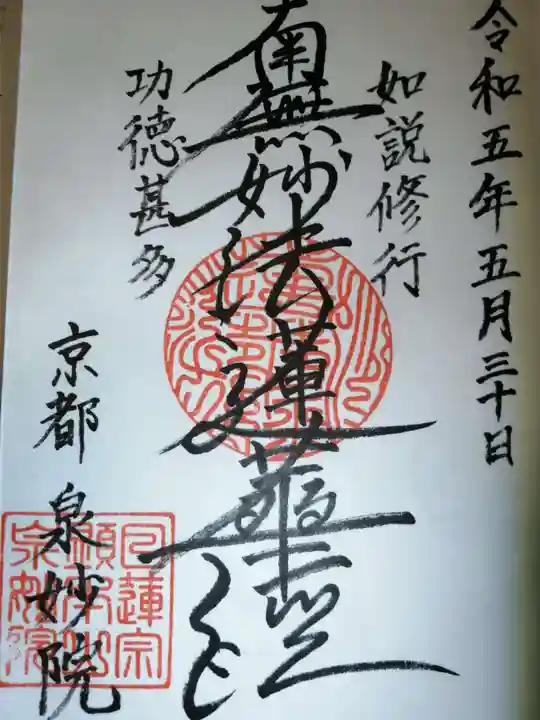 令和五年五月三十日
如説修行
南無妙法蓮華経
功徳甚多
京都 泉妙院
日蓮宗
顕本
泉妙院